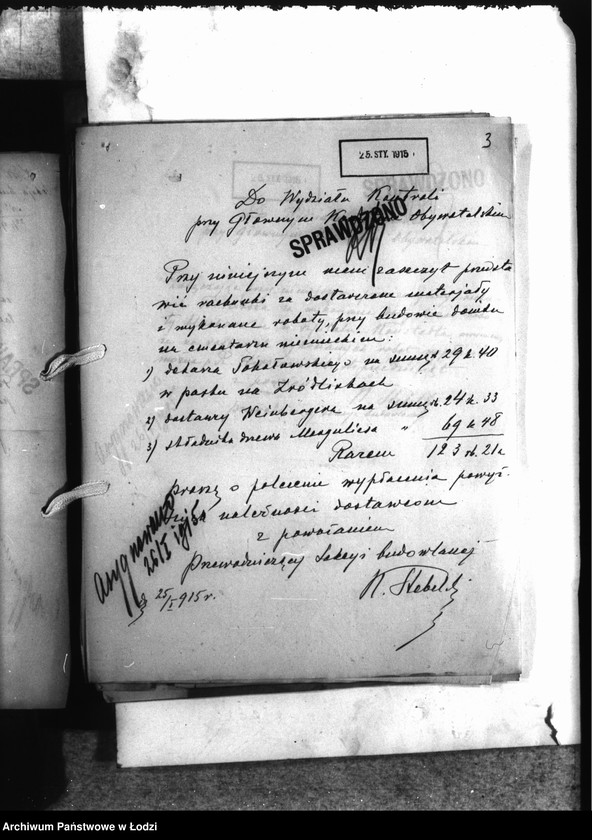 3
25. STY. 1915
Do Wydziału Kontroli
przy Głównym Obywatelskim
SPRAWDZONO
Przy niniejszym mam zaszczyt przedsta
wić rachunki za dostarczone materjały
i wykonane roboty, przy budowie domku
na cmentarzu niemieckim:
1) dekarza Sokołowskiego na sumę r. 29 k. 40
w parku na Źródliskach
2) dostawcy Weinbergera na sumę r. 24 k. 33
3) składnika drzewa Margulies " 69 k 48
Razem 123 rb. 21 k
Proszę o polecenie wypłacenia powyż-
należności dostawcom
z poważaniem
Przewodniczący Sekcyi budowlanej
Asygnowano
26/I 1915
25/I 915 r.
Archiwum Państwowe w Łodzi